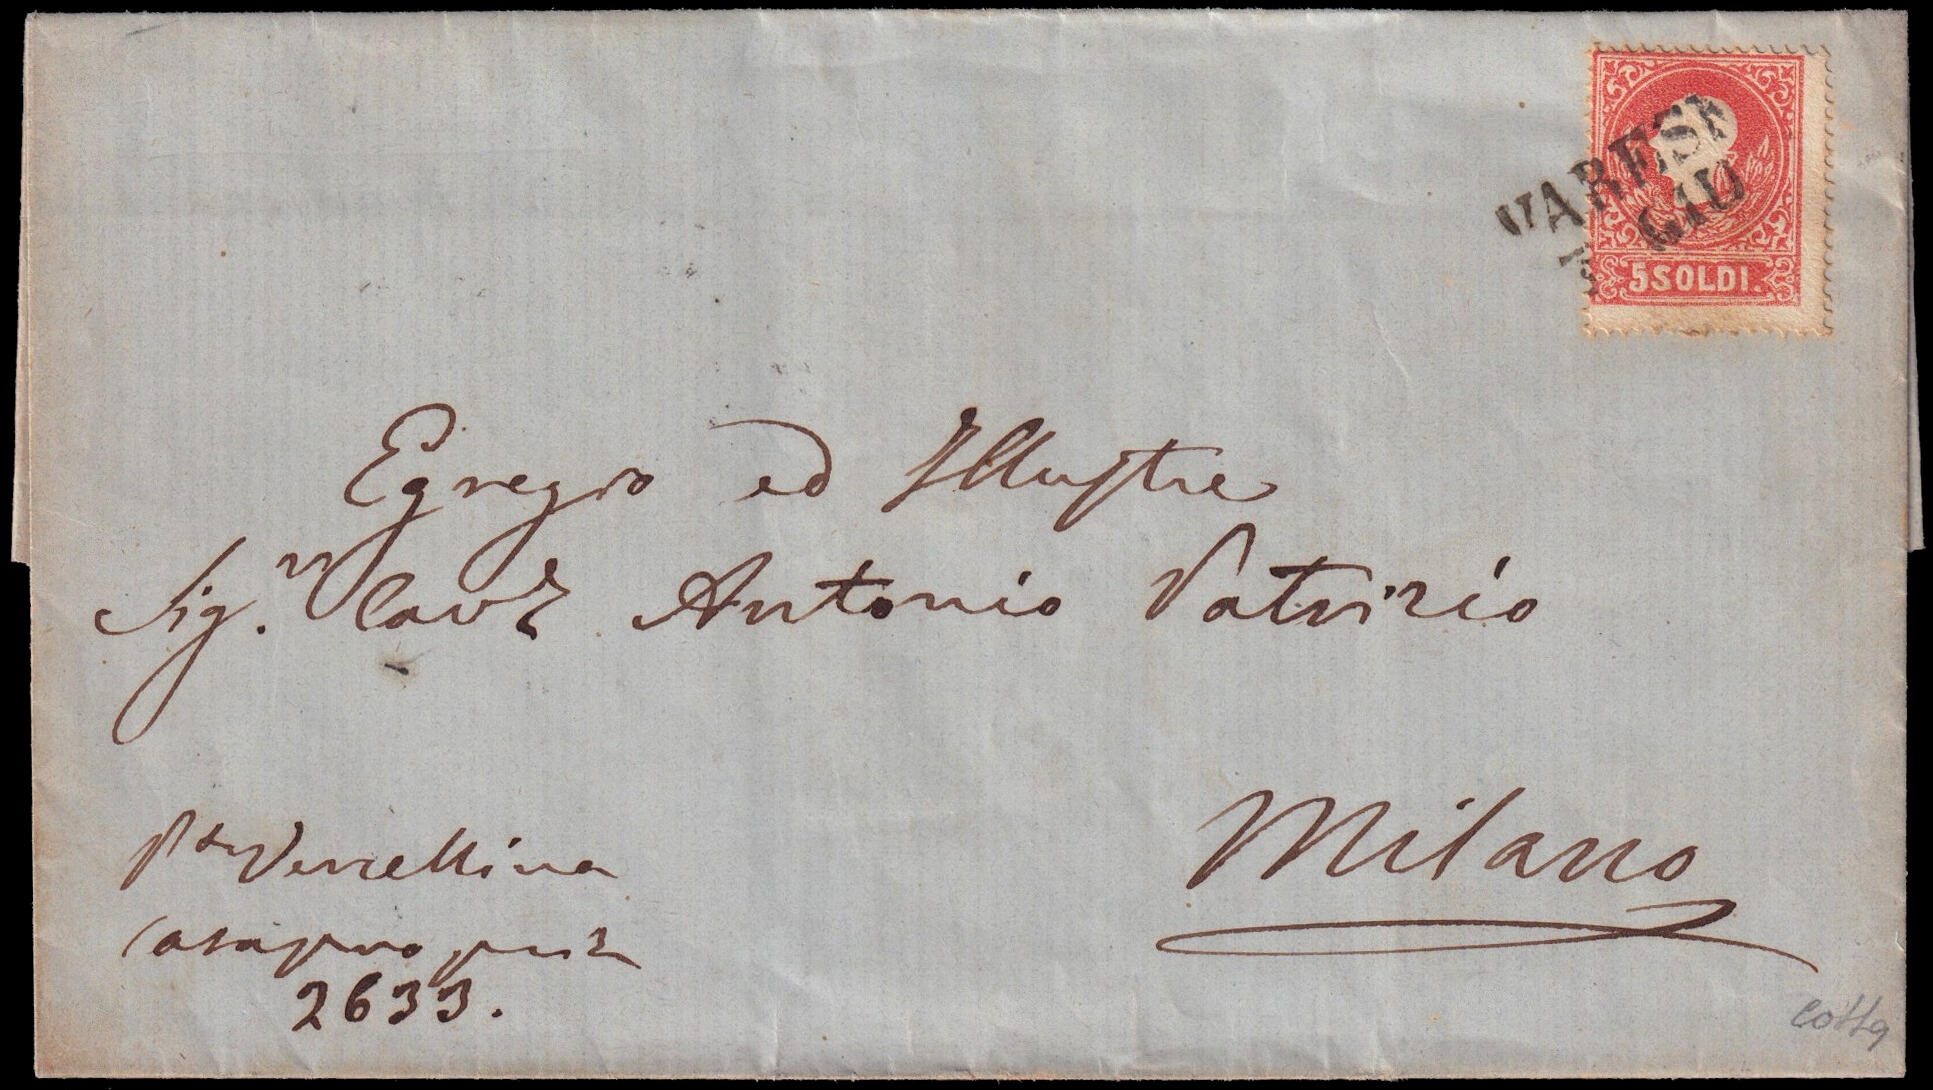 VARESE
GIU
5 SOLDI.
Egregio ed Illustre
Sig.r Cavr Antonio Patrizio
Milano
Pta Vercellina
Casa propria
2633.